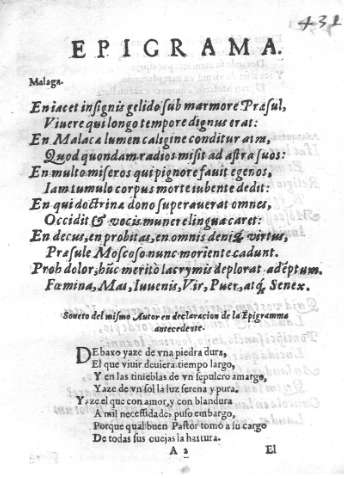 431
EPIGRAMA.
Malaga.
En iacet insignis gelido sub marmore Præsul,
Viuere qui longo tempore dignus erat:
En Malacæ lumen caligine conditur atra,
Quod quondam radios misit ad astra suos:
En multo miseros qui pignore fauit egenos,
Iam tumulo corpus morte iubente dedit:
En qui doctrina dono superauerat omnes,
Occidit & vocis munere lingua caret:
En decus, en probitas, en omnis deniq; virtus,
Præsule Moscoso nunc moriente cadunt.
Proh dolor, hũc merito lacrymis deplorat adẽptum.
Fœmina, Mas, Iuuenis, Vir, Puer, atq; Senex.
Soneto del mismo Autor en declaracion de la Epigramma
antecedente.
DEbaxo yaze de vna piedra dura,
El que viuir deuiera tiempo largo,
Y en las tinieblas de vn sepulcro amargo,
Yaze de vn sol la luz serena y pura.
Yaze el que con amor, y con blandura
A mil necessidades puso embargo,
Porque qual buen Pastor tomò a su cargo
De todas sus ouejas la hartura.
A 2 El